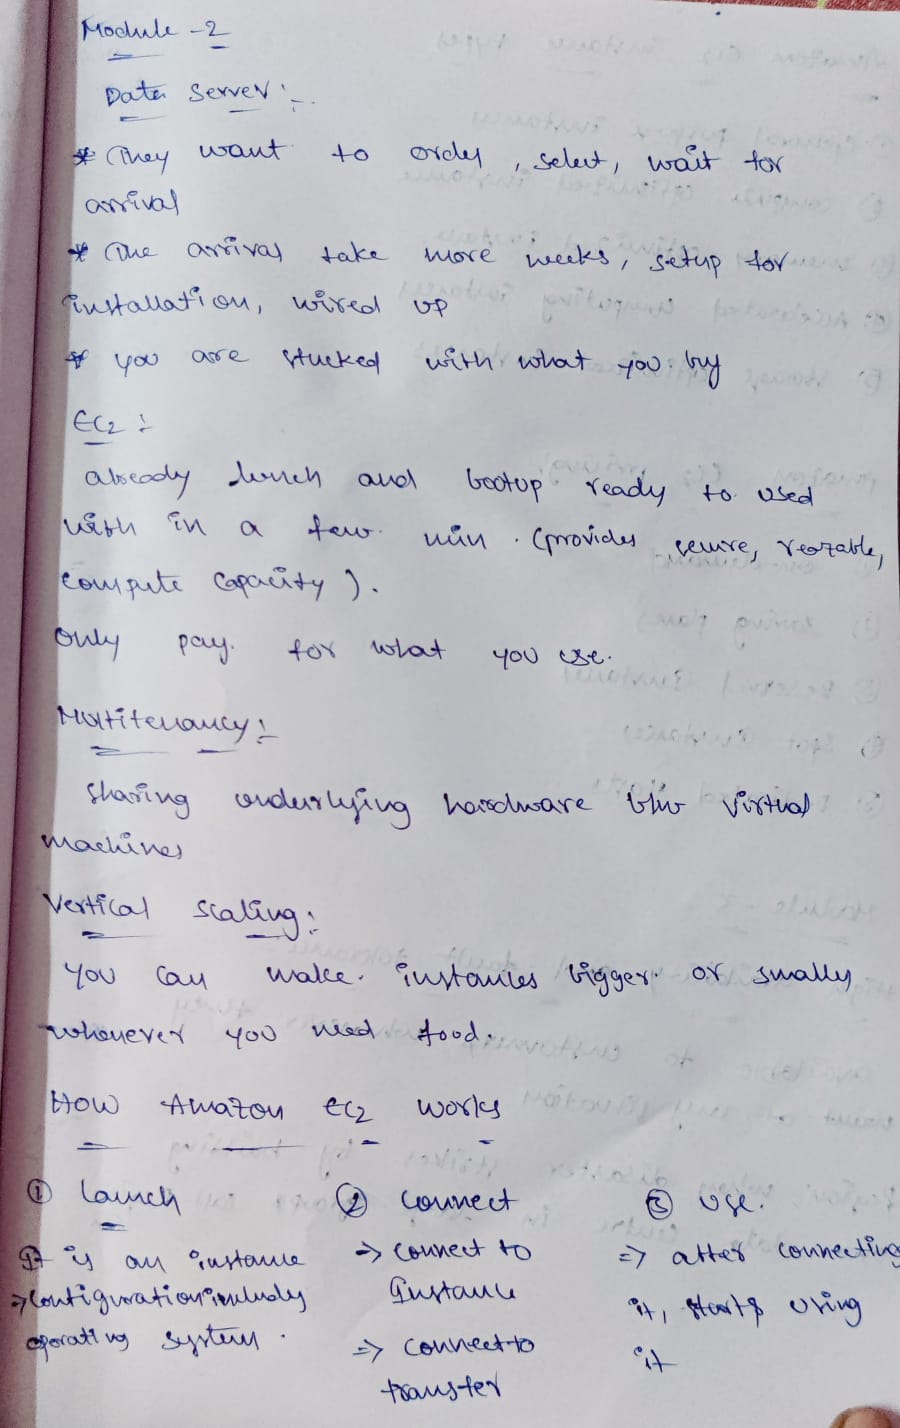 Module -2
Data Server :-
* They want to order, select, wait for
arrival
* The arrival take more weeks, setup for
installation, wired up
* you are stucked with what you by
EC2 :
already lunch and bootup ready to used
with in a few min. (provides secure, resizable,
compute capacity).
only pay for what you use.
Multitenancy :
Sharing underlying hardware b/w virtual
machines
Vertical scaling :
You can make instances bigger or smally
whenever you need
How Amazon EC2 works
① launch ② connect ③ use.
It is an instance
→ configuration includy
operating system.
→ connect to
instance
→ connect to
transfer
⇒ after connecting
it, starts using
it